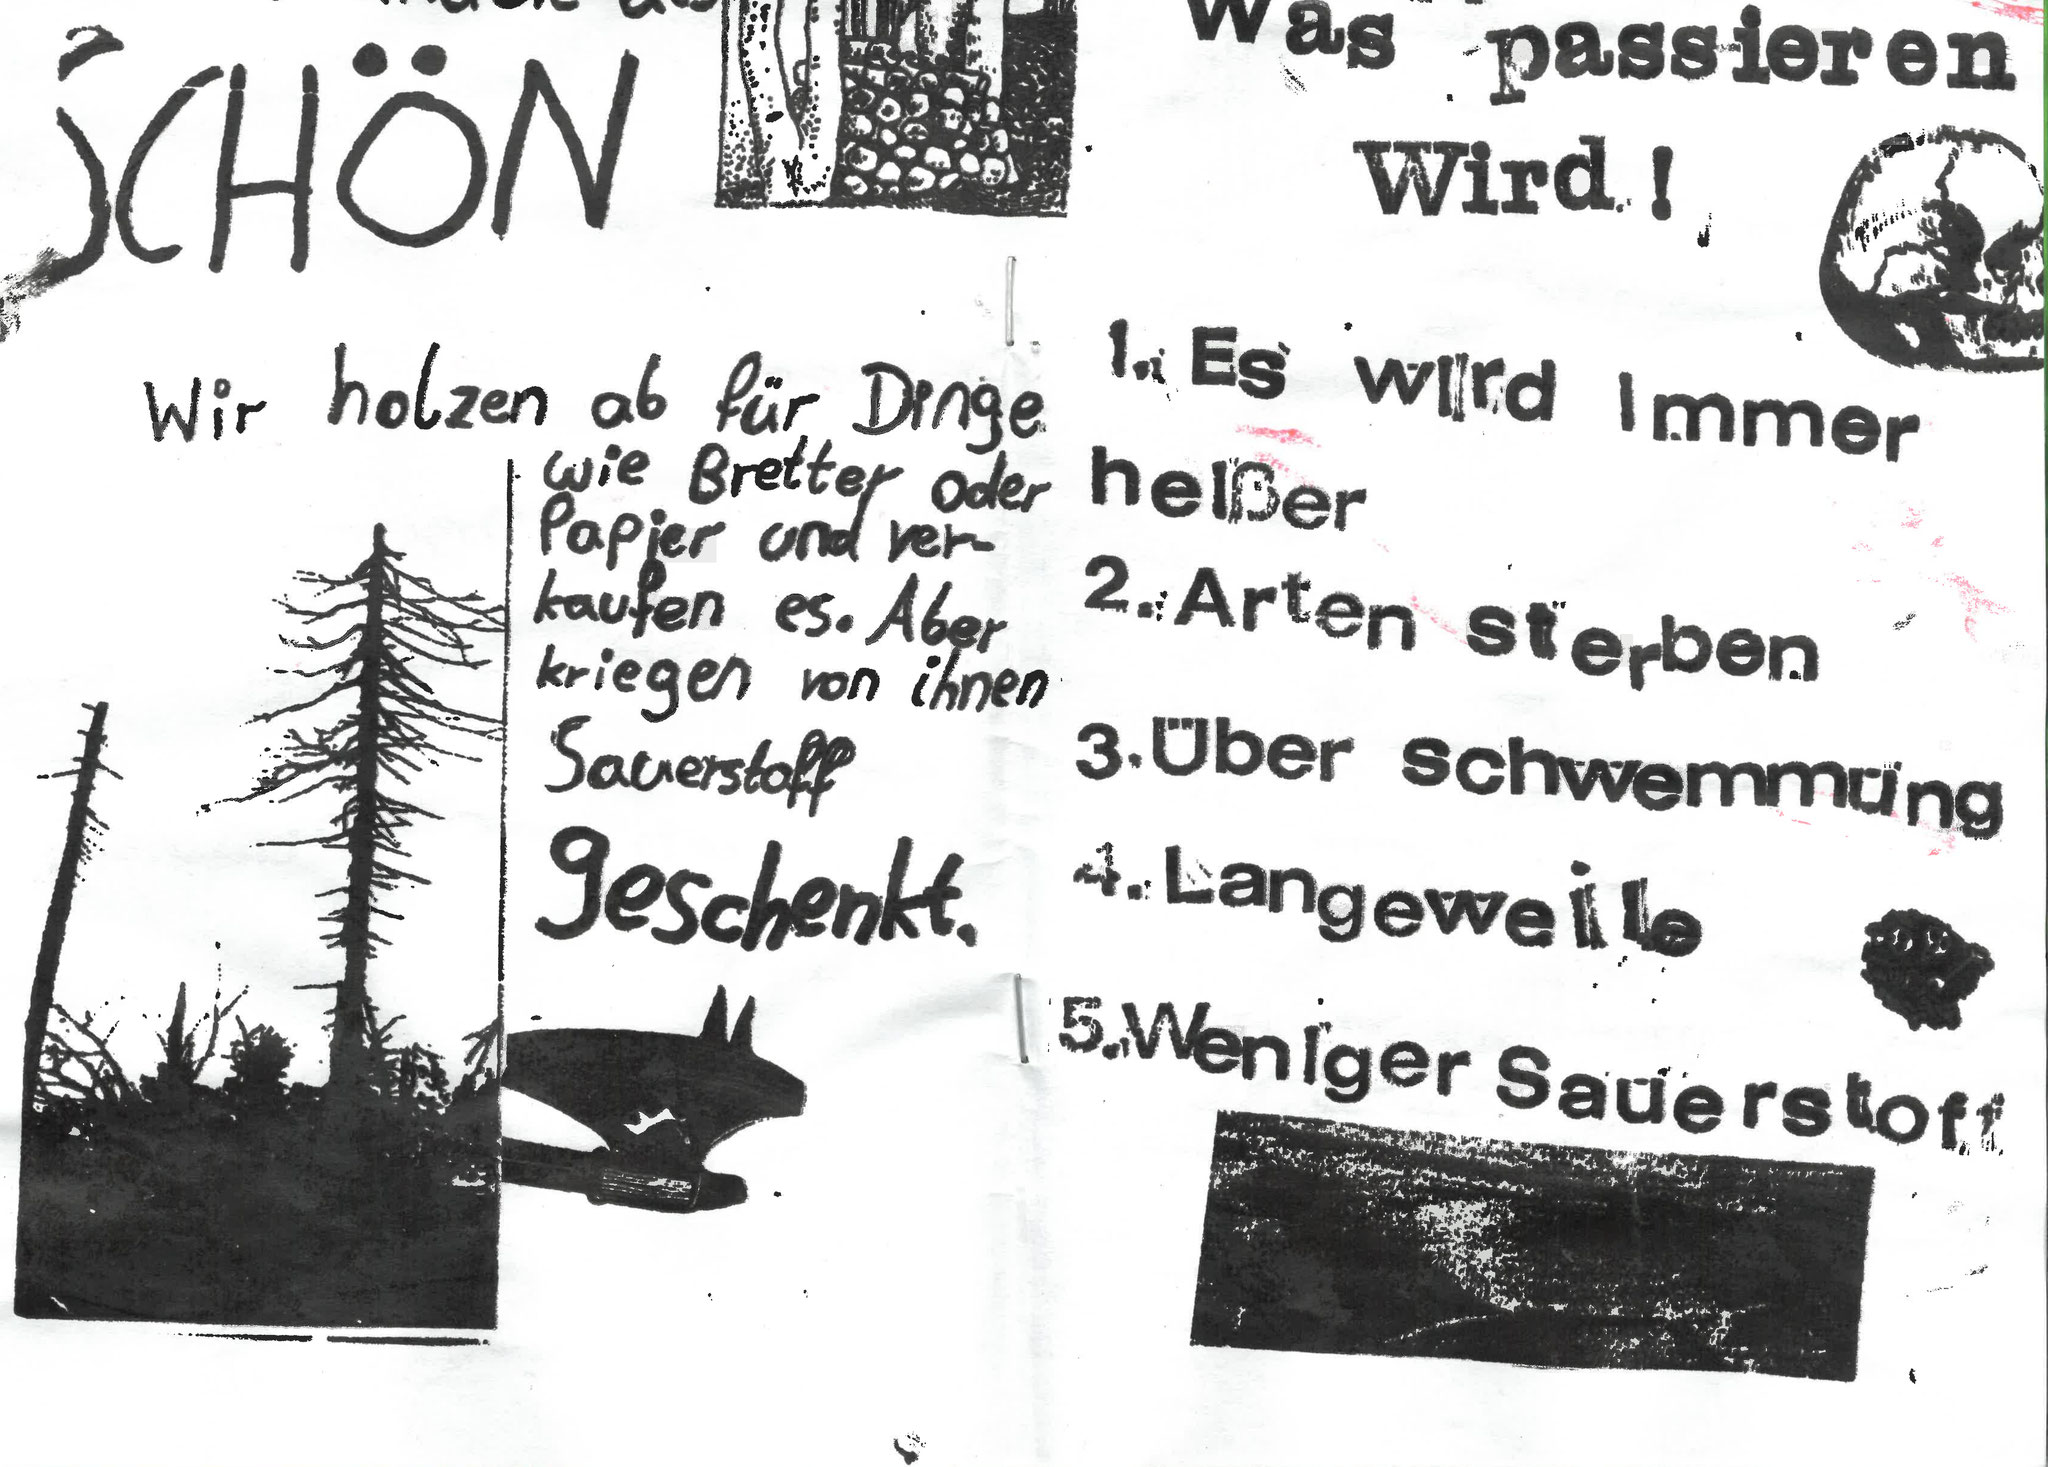 SCHÖN
Wir holzen ab für Dinge
wie Bretter oder
Papier und ver-
kaufen es. Aber
kriegen von ihnen
Sauerstoff
geschenkt.
Was passieren
Wird!
1. Es wird immer
heißer
2. Arten sterben
3. Über schwemmung
4. Langeweile
5. Weniger Sauerstoff